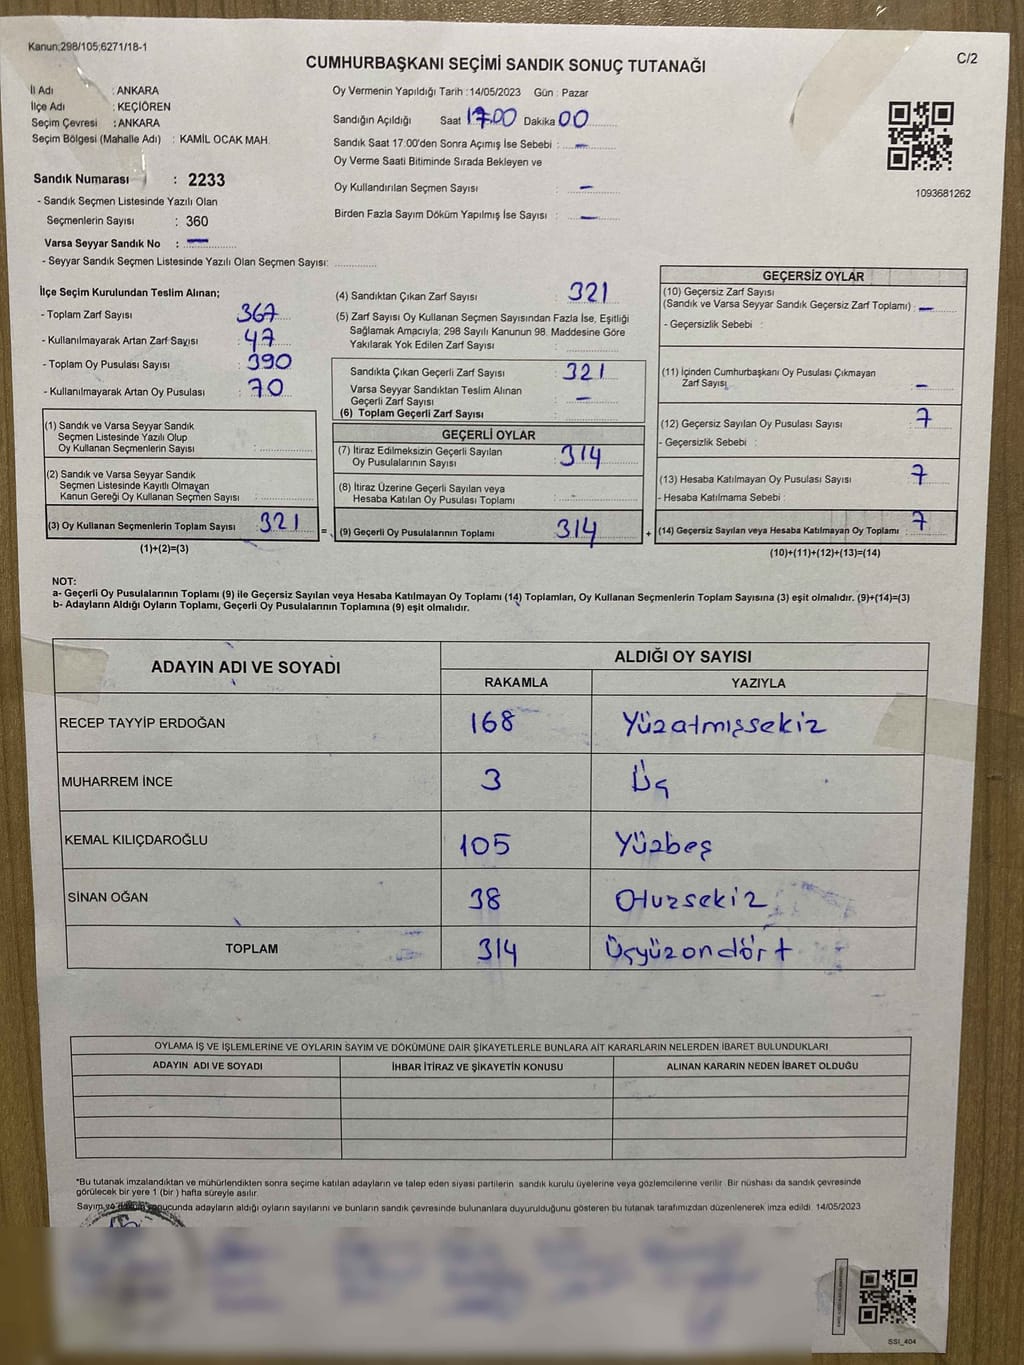 Kanun;298/105;6271/18-1
C/2
CUMHURBAŞKANI SEÇİMİ SANDIK SONUÇ TUTANAĞI
İl Adı : ANKARA
İlçe Adı : KEÇİÖREN
Seçim Çevresi : ANKARA
Seçim Bölgesi (Mahalle Adı) : KAMİL OCAK MAH.
Sandık Numarası : 2233
- Sandık Seçmen Listesinde Yazılı Olan
Seçmenlerin Sayısı : 360
Varsa Seyyar Sandık No : —
- Seyyar Sandık Seçmen Listesinde Yazılı Olan Seçmen Sayısı:
Oy Vermenin Yapıldığı Tarih :14/05/2023 Gün : Pazar
Sandığın Açıldığı Saat 17.00 Dakika 00
Sandık Saat 17:00'den Sonra Açımış İse Sebebi : —
Oy Verme Saati Bitiminde Sırada Bekleyen ve
Oy Kullandırılan Seçmen Sayısı : —
Birden Fazla Sayım Döküm Yapılmış İse Sayısı : —
1093681262
İlçe Seçim Kurulundan Teslim Alınan;
- Toplam Zarf Sayısı : 367
- Kullanılmayarak Artan Zarf Sayısı : 47
- Toplam Oy Pusulası Sayısı : 390
- Kullanılmayarak Artan Oy Pusulası : 70
(1) Sandık ve Varsa Seyyar Sandık
Seçmen Listesinde Yazılı Olup
Oy Kullanan Seçmenlerin Sayısı :
(2) Sandık ve Varsa Seyyar Sandık
Seçmen Listesinde Kayıtlı Olmayan
Kanun Gereği Oy Kullanan Seçmen Sayısı :
(3) Oy Kullanan Seçmenlerin Toplam Sayısı : 321
(1)+(2)=(3)
(4) Sandıktan Çıkan Zarf Sayısı : 321
(5) Zarf Sayısı Oy Kullanan Seçmen Sayısından Fazla İse, Eşitliği
Sağlamak Amacıyla; 298 Sayılı Kanunun 98. Maddesine Göre
Yakılarak Yok Edilen Zarf Sayısı :
Sandıkta Çıkan Geçerli Zarf Sayısı : 321
Varsa Seyyar Sandıktan Teslim Alınan
Geçerli Zarf Sayısı : —
(6) Toplam Geçerli Zarf Sayısı :
GEÇERLİ OYLAR
(7) İtiraz Edilmeksizin Geçerli Sayılan
Oy Pusulalarının Sayısı : 314
(8) İtiraz Üzerine Geçerli Sayılan veya
Hesaba Katılan Oy Pusulası Toplamı : -
= (9) Geçerli Oy Pusulalarının Toplamı : 314
GEÇERSİZ OYLAR
(10) Geçersiz Zarf Sayısı
(Sandık ve Varsa Seyyar Sandık Geçersiz Zarf Toplamı) : —
- Geçersizlik Sebebi :
(11) İçinden Cumhurbaşkanı Oy Pusulası Çıkmayan
Zarf Sayısı : —
(12) Geçersiz Sayılan Oy Pusulası Sayısı : 7
- Geçersizlik Sebebi :
(13) Hesaba Katılmayan Oy Pusulası Sayısı : 7
- Hesaba Katılmama Sebebi :
+ (14) Geçersiz Sayılan veya Hesaba Katılmayan Oy Toplamı : 7
(10)+(11)+(12)+(13)=(14)
NOT:
a- Geçerli Oy Pusulalarının Toplamı (9) ile Geçersiz Sayılan veya Hesaba Katılmayan Oy Toplamı (14) Toplamları, Oy Kullanan Seçmenlerin Toplam Sayısına (3) eşit olmalıdır. (9)+(14)=(3)
b- Adayların Aldığı Oyların Toplamı, Geçerli Oy Pusulalarının Toplamına (9) eşit olmalıdır.
ADAYIN ADI VE SOYADI ALDIĞI OY SAYISI
RAKAMLA YAZIYLA
RECEP TAYYİP ERDOĞAN 168 Yüzatmışsekiz
MUHARREM İNCE 3 Üç
KEMAL KILIÇDAROĞLU 105 Yüzbeş
SİNAN OĞAN 38 Otuzsekiz
TOPLAM 314 Üçyüzondört
OYLAMA İŞ VE İŞLEMLERİNE VE OYLARIN SAYIM VE DÖKÜMÜNE DAİR ŞİKAYETLERLE BUNLARA AİT KARARLARIN NELERDEN İBARET BULUNDUKLARI
ADAYIN ADI VE SOYADI İHBAR İTİRAZ VE ŞİKAYETİN KONUSU ALINAN KARARIN NEDEN İBARET OLDUĞU
*Bu tutanak imzalandıktan ve mühürlendikten sonra seçime katılan adayların ve talep eden siyasi partilerin sandık kurulu üyelerine veya gözlemcilerine verilir. Bir nüshası da sandık çevresinde
görülecek bir yere 1 (bir ) hafta süreyle asılır.
Sayım ve döküm sonucunda adayların aldığı oyların sayılarını ve bunların sandık çevresinde bulunanlara duyurulduğunu gösteren bu tutanak tarafımızdan düzenlenerek imza edildi. 14/05/2023
SSI_404